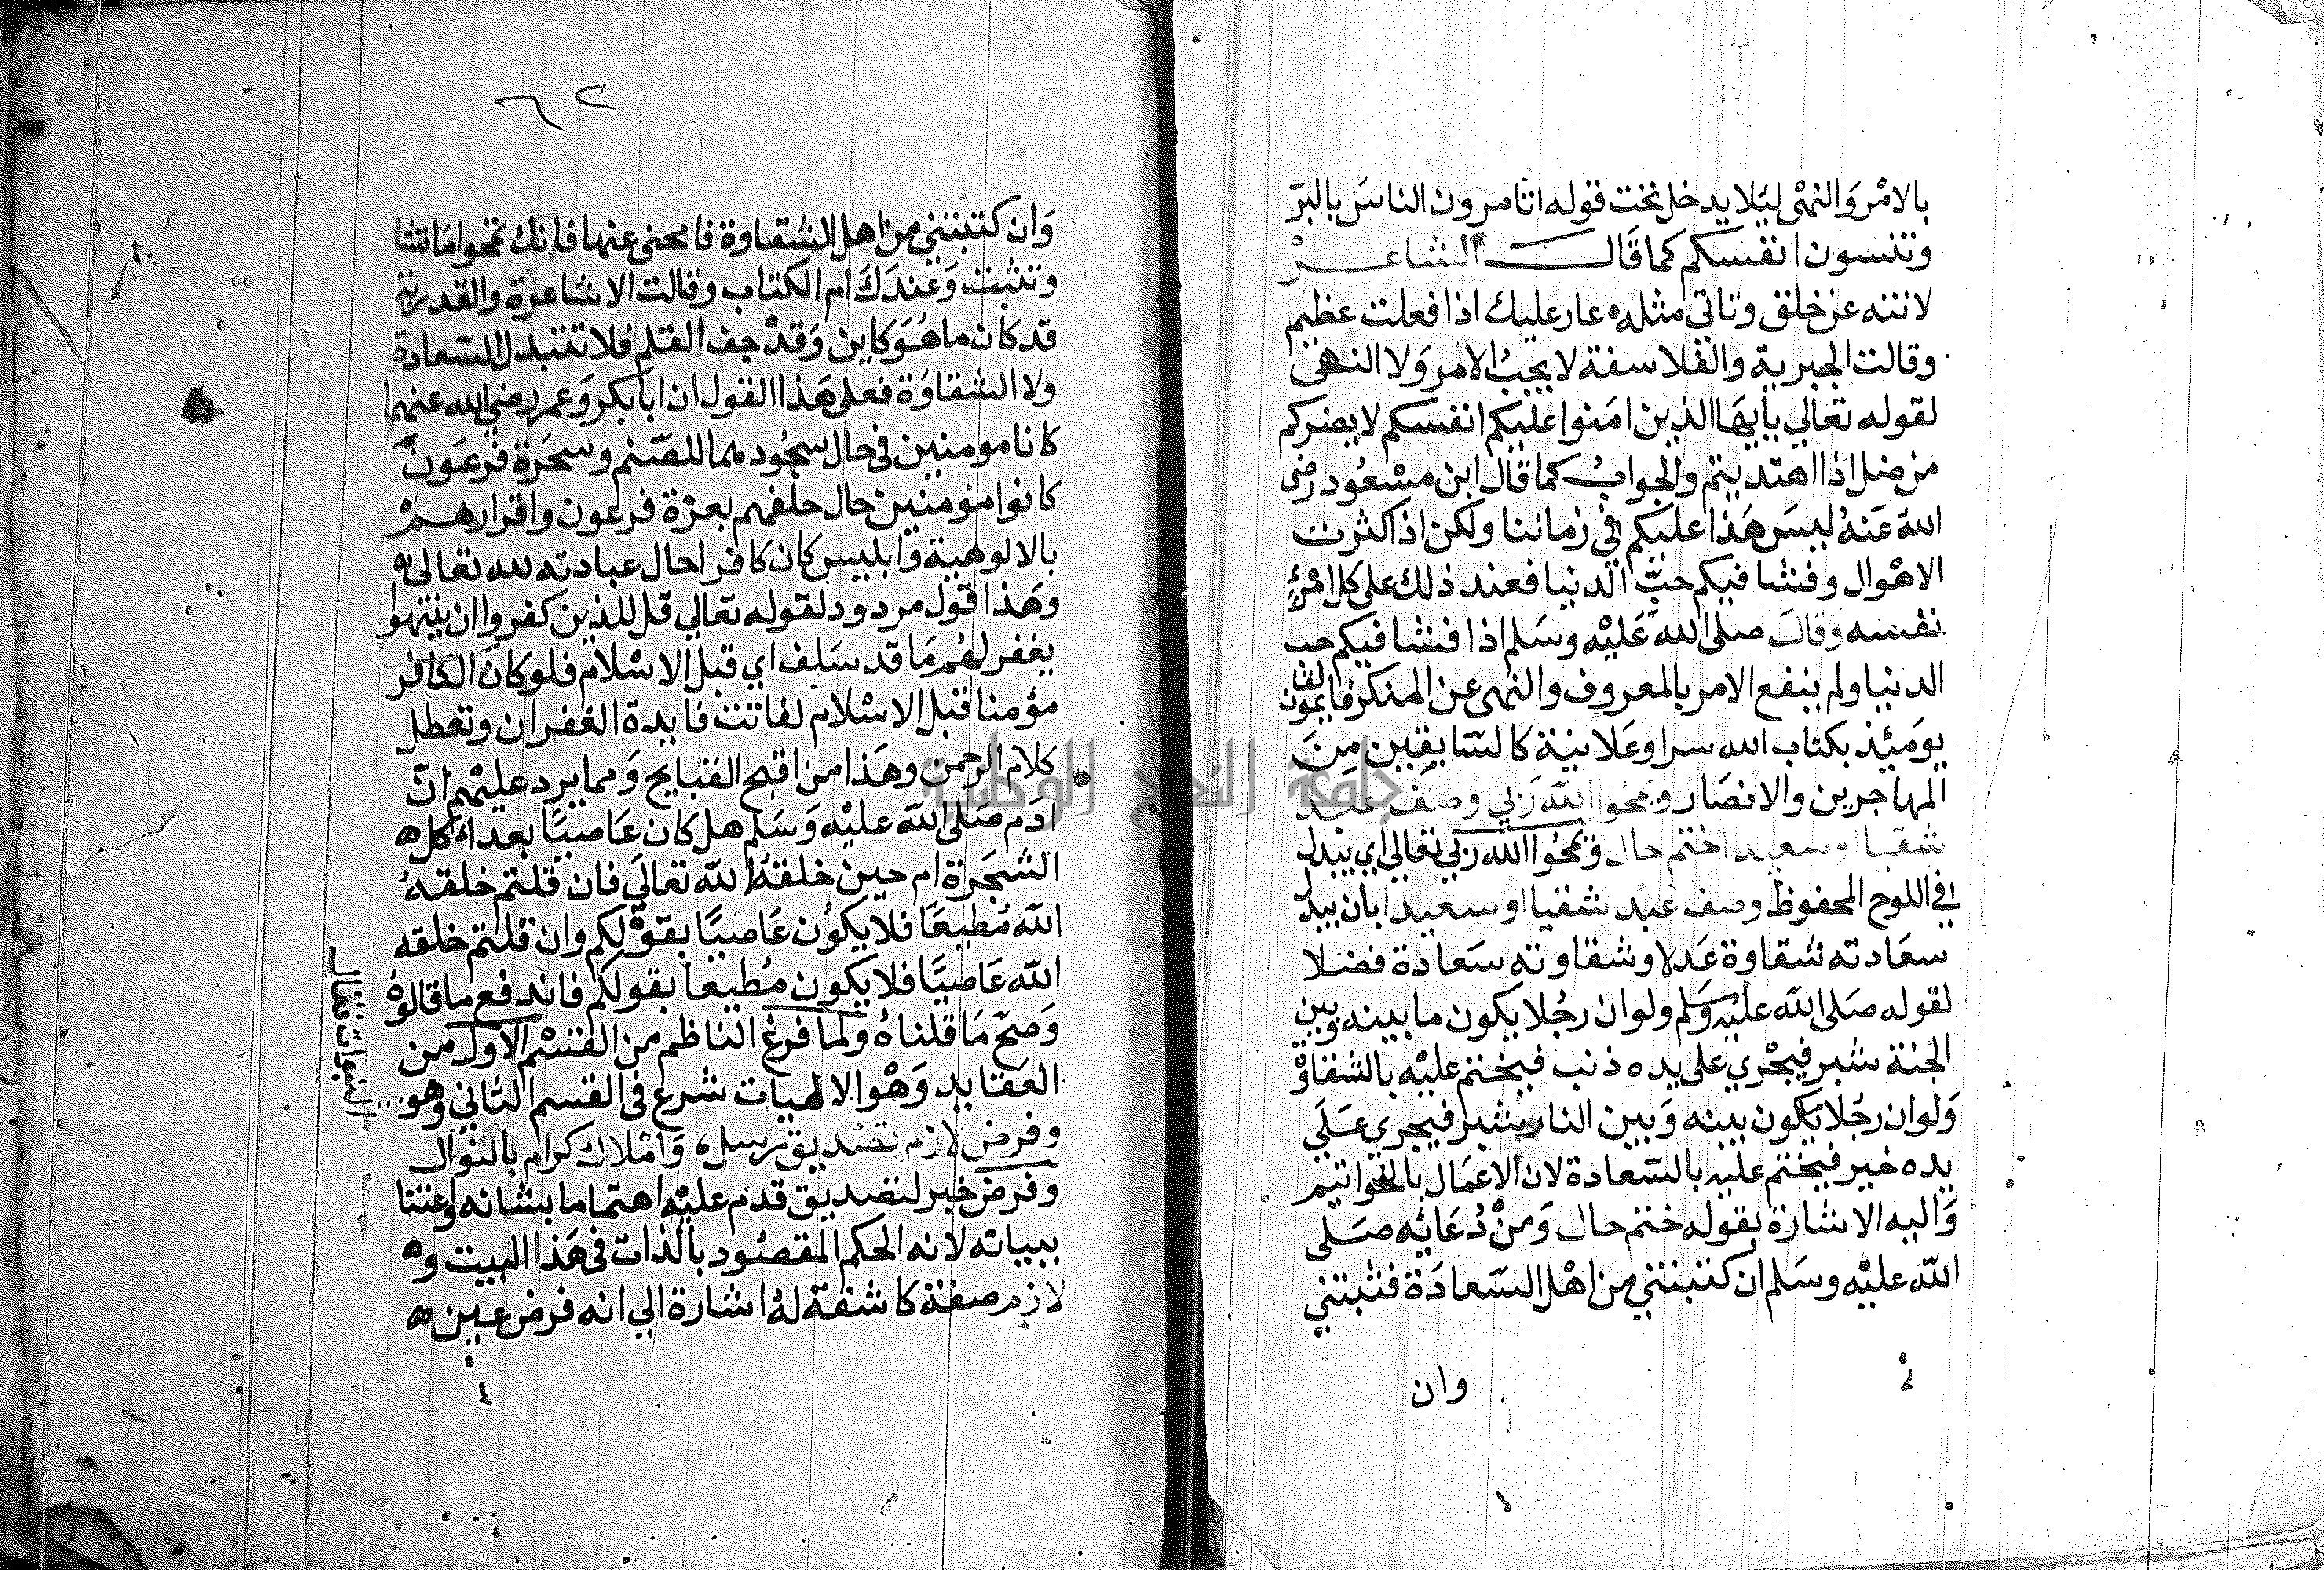 بالامْر وَالنهْى ليَلا يدخل تحت قوله اتامرون الناسَ بالبرّ
وتنسون انفسكم كما قَالــــــ الشاعــــرْ
لاتنه عن خلق وتاتي مثله ه عار عليك اذا فعلت عظيم
وقالت الجبرية والفلاسفة لا يجبُ الامر وَلا النهى
لقوله تعالي يايها الذين امَنوا عليكم انفسكم لا يضركم
من ضل اذا اهتديتم والجوابُ كما قال ابن مسْعُود رضى
اللهَ عَنهُ ليسَ هَذا عليكم في زماننا ولكن اذا كثرت
الاهْوال وفشا فيكم حبّ الدنيا فعند ذلك على كل امْرئٍ
نفسه وقالَ صلى اللهَ عَليْه وسَلم اذا فشا فيكم حب
الدنيا ولم ينفع الامر بالمعروف والنهى عن المنكر فالقايمون
يومَئِذ بكتاب الله سرا وعَلانية كالسّابقين منَ
المهاجرين والانصَار ويمحوا اللهَ ربي وصفَ عبد
شقيا وسعيدا ختم حال ويمحُوا الله ربي تعالي اي يبدل
في اللوح المحفوظ وصف عبد شقيا او سعيدا بان يبدل
سعَادته شقاوة عَدلا وشقاوته سَعادة فضلا
لقوله صَلى اللهَ عليْه وَلم ولوان رجُلا يكون ما بينه وبين
الجنة شبر فيجْري على يده ذنب فيختم عليْه بالشقاوْ
وَلوان رجُلا يكون بينه وَبين النار شبر فيجري عَلَي
يده خير فيختم عليه بالسّعادة لان الاعمَال بالخواتيم
وَاليه الاشارة بقوله ختم حال وَمنْ دُعَائِه صَلى
اللهَ عليْه وسَلم ان كتبتني من اهْل السّعادَة فثبتني
وان
٦٢
وَان كتبتني من اهل الشقاوة فامحنى عنها فانك تمحوا مَا تشا
وتثبت وَعندَكَ ام الكتاب وقالت الاشاعرة والقدرية
قد كان ما هُوَ كاين وَقدْ جف القلم فلا تتبدل السّعادة
ولا الشقاوُة فعلى هَذا القول ان ابا بكر وَعمر رضي الله عنهما
كانا مومنين فى حال سجُودهما للصّنم وسحَرة فرعَون
كانوا مومنين حال حلفهم بعزة فرعون واقرارهــمْ
بالالوهية وَابليس كان كافرا حال عبادته لله تعالى ه
وهَذا قول مردود لقوله تعالي قل للذين كفروا ان ينتهوا
يغفر لهُم مَا قد سَلِف اي قبل الاسْلام فلو كان الكافر
مؤمنا قبل الاسْلام لفاتت فايدة الغفران وتعطل
كلام الرحمن وهَذا من اقبح القبايح وَمما يرد عليْهم انّ
ادَم صَلى اللهَ عليْه وَسَلم هل كان عَاصيًا بعد اكل ه
الشجَرة ام حين خلقهُ اللهَ تعَالَي فان قلتم خلقهُ
اللهَ مُطيعًا فلا يكُون عَاصيًا بقولكم وان قلتم خلقه
اللهَ عَاصيًا فلا يكون مُطيعا بقولكم فاندفع ما قالوهُ
وَصحّ مَا قلناهُ ولما فرغ الناظم من القسْم الاول من
العقايد وَهْو الالهيات شرع فى القسم الثاني وهو
النبوات فقالــ
وفرض لازم تصديق رسل ه وَامْلاك كرام بالنوال
وفرض خبر لتصديق قدم عليْه اهتماما بشانه واعتنا
ببيانه لانه الحكم المقصُود بالذات فى هَذا البيت و ه
لازم صفة كاشفة لهُ اشارة الي انه فرض عين ه